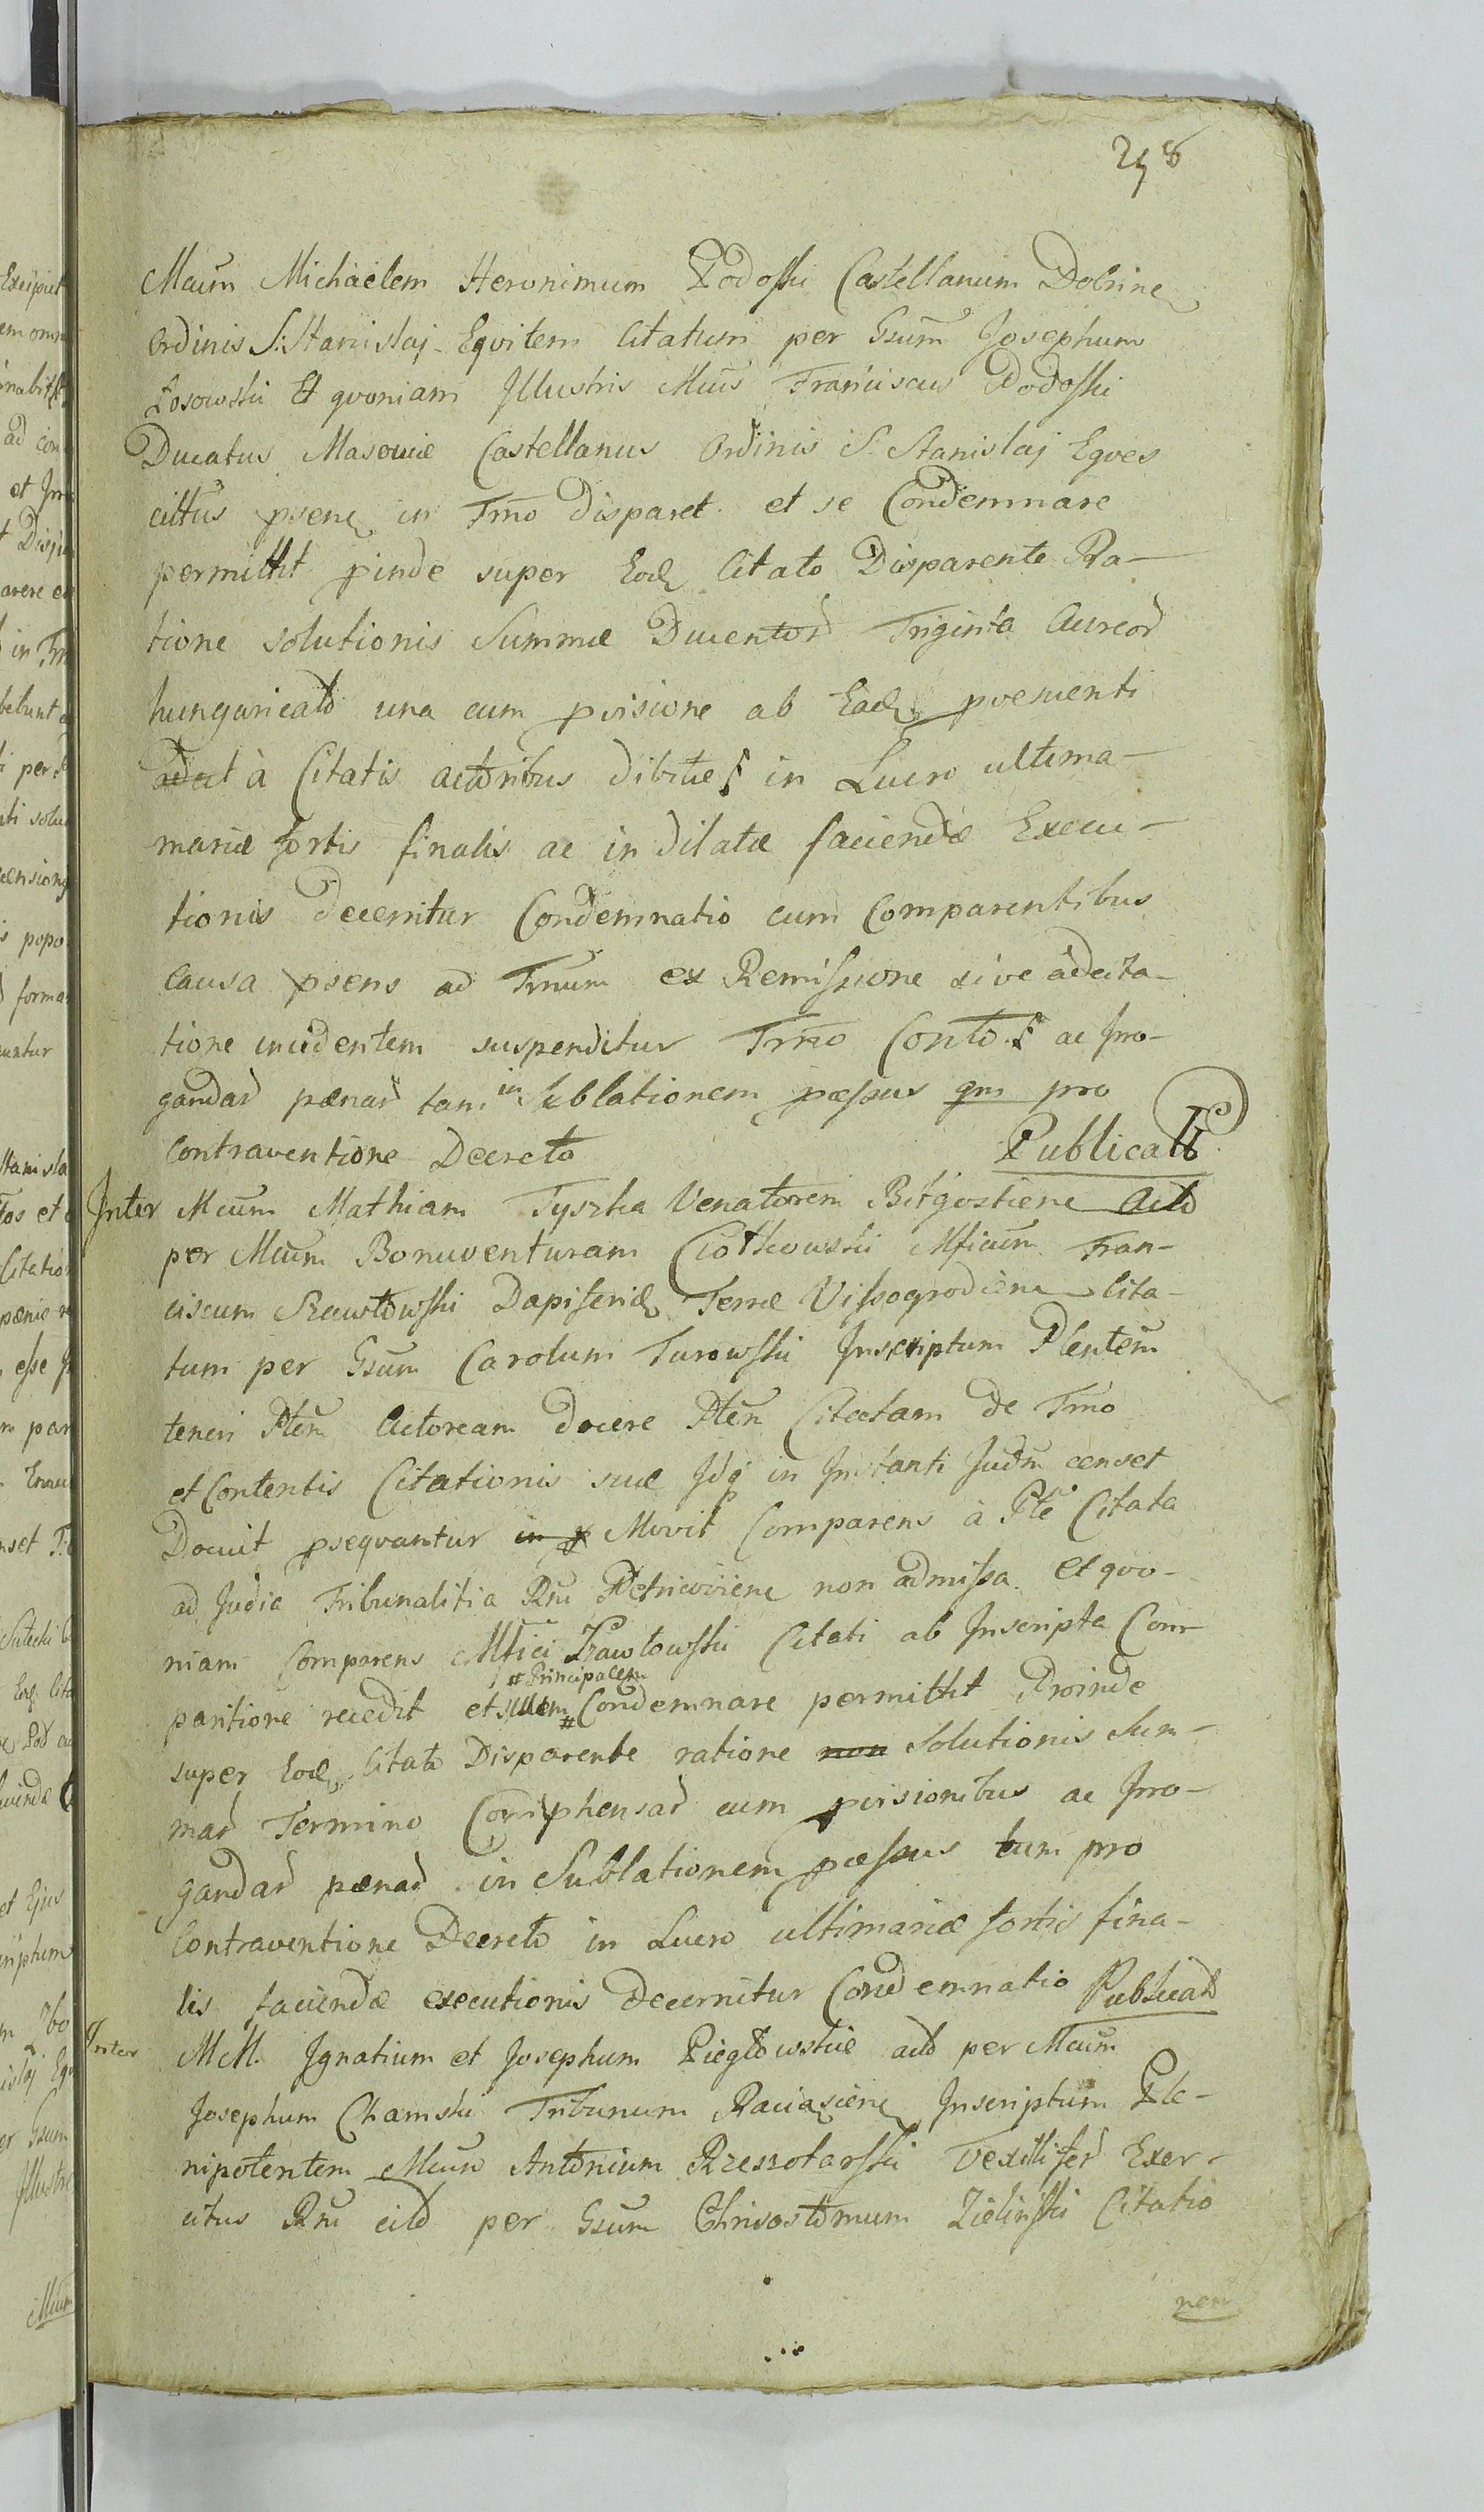 258
Mcum Michaelem Heronimum Podoski Castellanum Dobrinen
Ordinis S. Stanislaj Equitem Citatum per Gsum Josephum
Łosowski Et quoniam Illustris Mcus Franciscus Podoski
Ducatus Masoviæ Castellanus Ordinis S. Stanislaj Eques
cittus psens in Trno disparet et se Condemnare
permittit pinde super Eod Citato Disparente Ra-
tione solutionis Summæ Ducentor Triginta Aureor
hungaricalo una cum pvisione ab Ead proveniente
à Citatis actoribus debitæ in Lucro ultima-
mariæ fortis finalis ac in dilatæ faciendæ Execu-
tionis decernitur Condemnatio cum Comparentibus
Causa psens ad Trnum ex Remissione sive adcita-
tione incidentem suspenditur Trno Conto ac Irro-
gandar pænar tam in Sublationem pæssus qm pro
Contraventione Decreto Publicato
Inter Mcum Mathiam Tyszka Venatorem Bitgostiene Acto
per Mcum Bonaventuram Ciotkowski Mficum Fran-
ciscum Szawłowski Dapiferid Terræ Vissogrodiene Cita-
tum per Gsum Carolum Turowski Inscriptum Plentem
teneri Ptem Actoream docere Ptem Citatam de Trno
et Contentis Citationis suæ Idq in Instanti Judm censet
Docuit psequantur Movit Comparens à Pte Citata
ad Judia Tribunalitia Rni Petricoviene non admissa. Et quo-
niam Comparens Mfici Szawłowski Citati ab Inscripta Com-
# Principalem
paritione recedit et suum # Condemnare permittit Proinde
super Eod Citato Disparente ratione non Solutionis Sum-
mar Termino Comphensar cum pvisionibus ac Irro-
gandar pænar in Sublationem pæssus tum pro
Contraventione Decreto in Lucro ultimariæ fortis fina-
lis faciendæ executionis decernitur Condemnatio Publicato
Inter MM. Ignatium et Josephum Piegłowskie acto per Mcum
Josephum Chamski Tribunum Raciasiene Inscriptum Ple-
nipotentem Mcum Antonium Rzeszotarski Vexillifer Exer-
citus Rni cito per Gsum Chrisostomum Zielinski Citatio
non